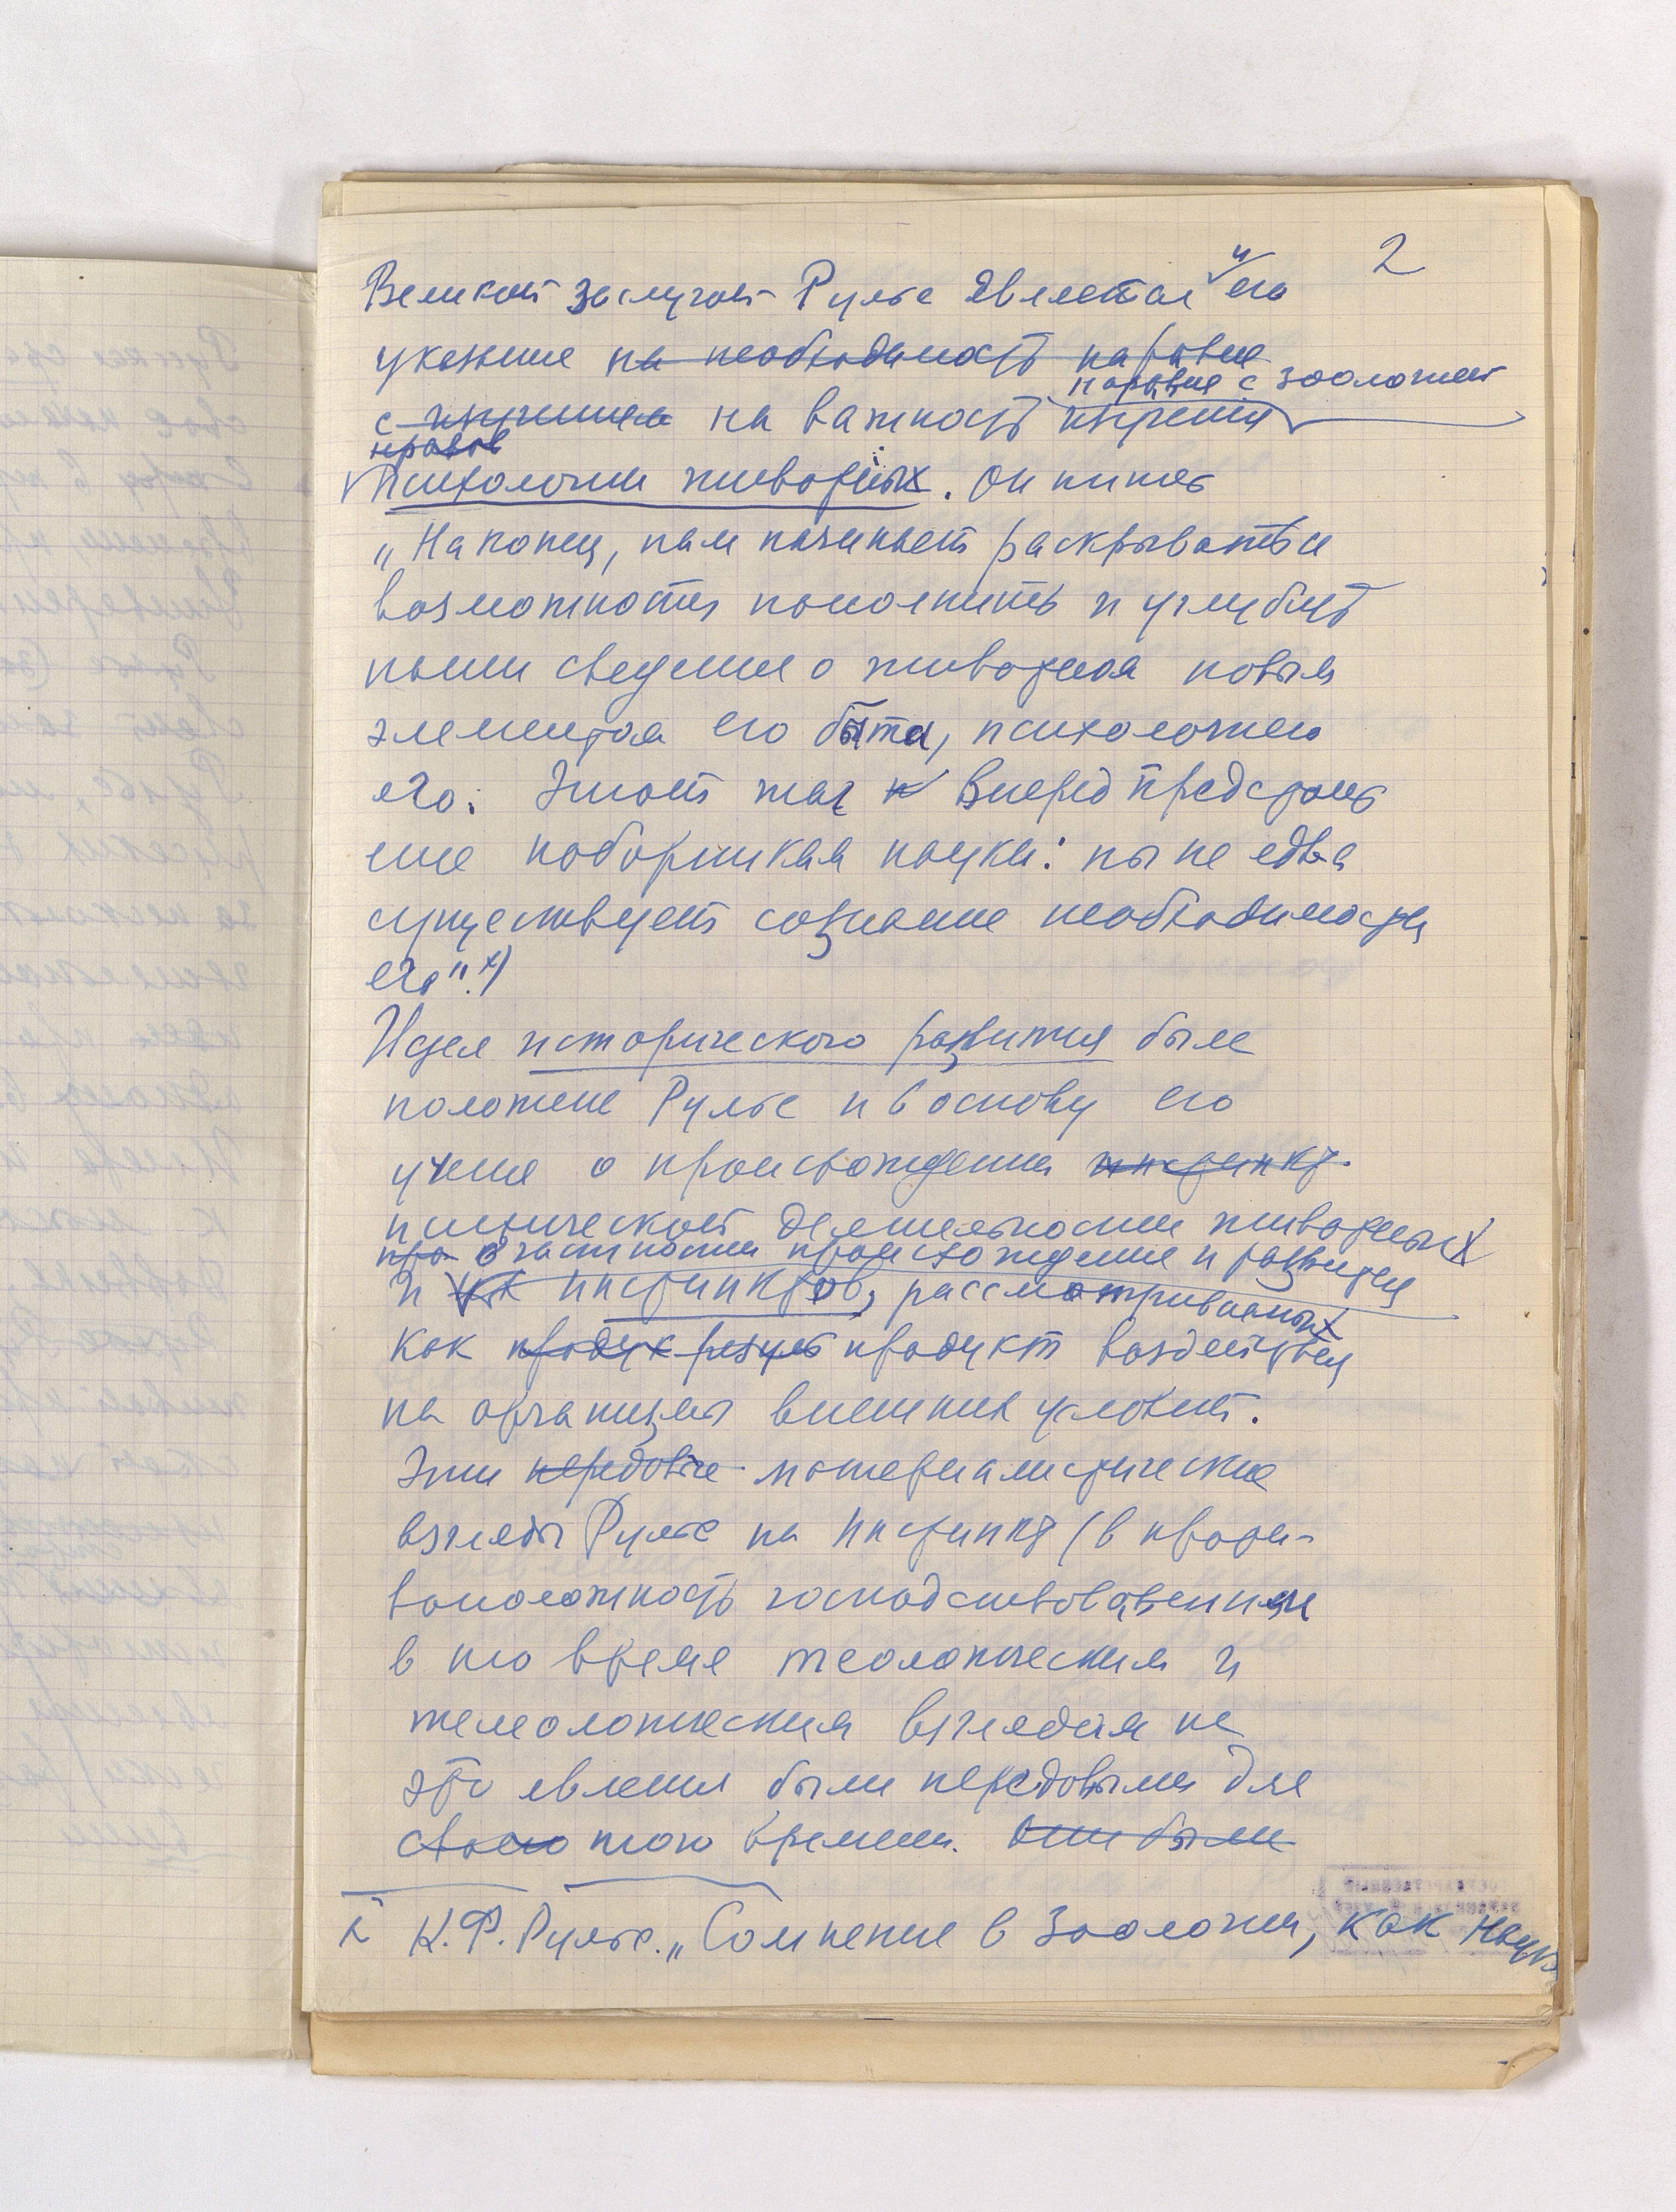 2
Великой заслугой Рулье является и его
указание на необходимость наравне
наравне с зоологией
с изучением на важность изучения
нравов
психологии животных. Он пишет
„Наконец, нам начинает раскрываться
возможность пополнить и углубить
наши сведения о животном новым
элементом его быта, психологиею
его. Этот шаг к вперед предстоит
еще поборникам науки: ныне едва
существует сознание необходимости
его". х)
Идея исторического развития была
положена Рулье и в основу его
учения о происхождении инстинкт
психической деятельности животных
про в частности происхождение и развития
и их инстинктов, рассматриваемых
как продук резуль продукт воздействия
на организм внешних условий.
Эти передовые материалистические
взгляды Рулье на инстинкт (в проти-
воположность господствовавшим
в то время теологическим и
телеологическим взглядам на
это явления были передовыми для
своего того времени. Они были
х К.Ф. Рулье. „Сомнение в Зоологии, как науке